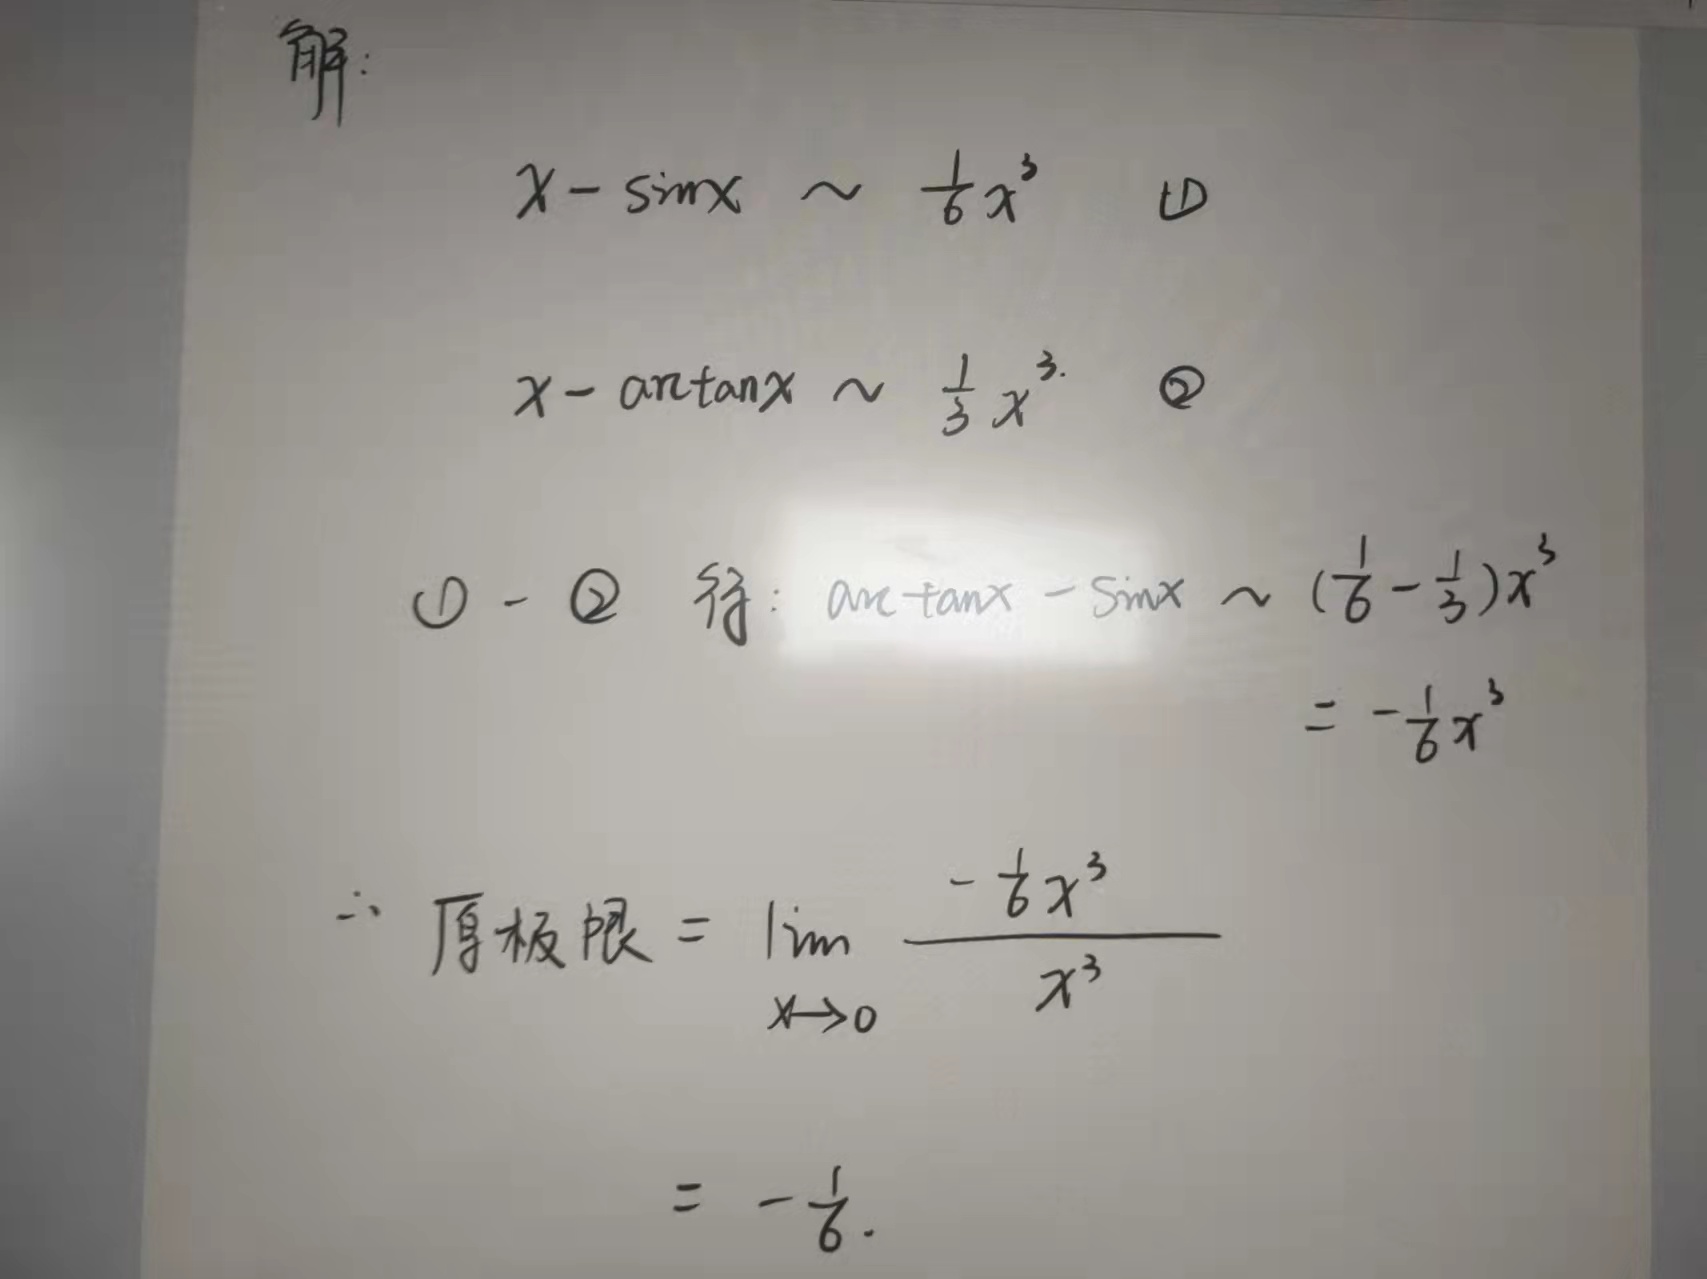 解:
x - sinx ~ 1/6 x³ ①
x - arctanx ~ 1/3 x³. ②
① - ② 得: arctanx - sinx ~ (1/6 - 1/3)x³
= -1/6 x³
∴ 原极限 = lim x→0 (-1/6 x³)/(x³)
= -1/6.